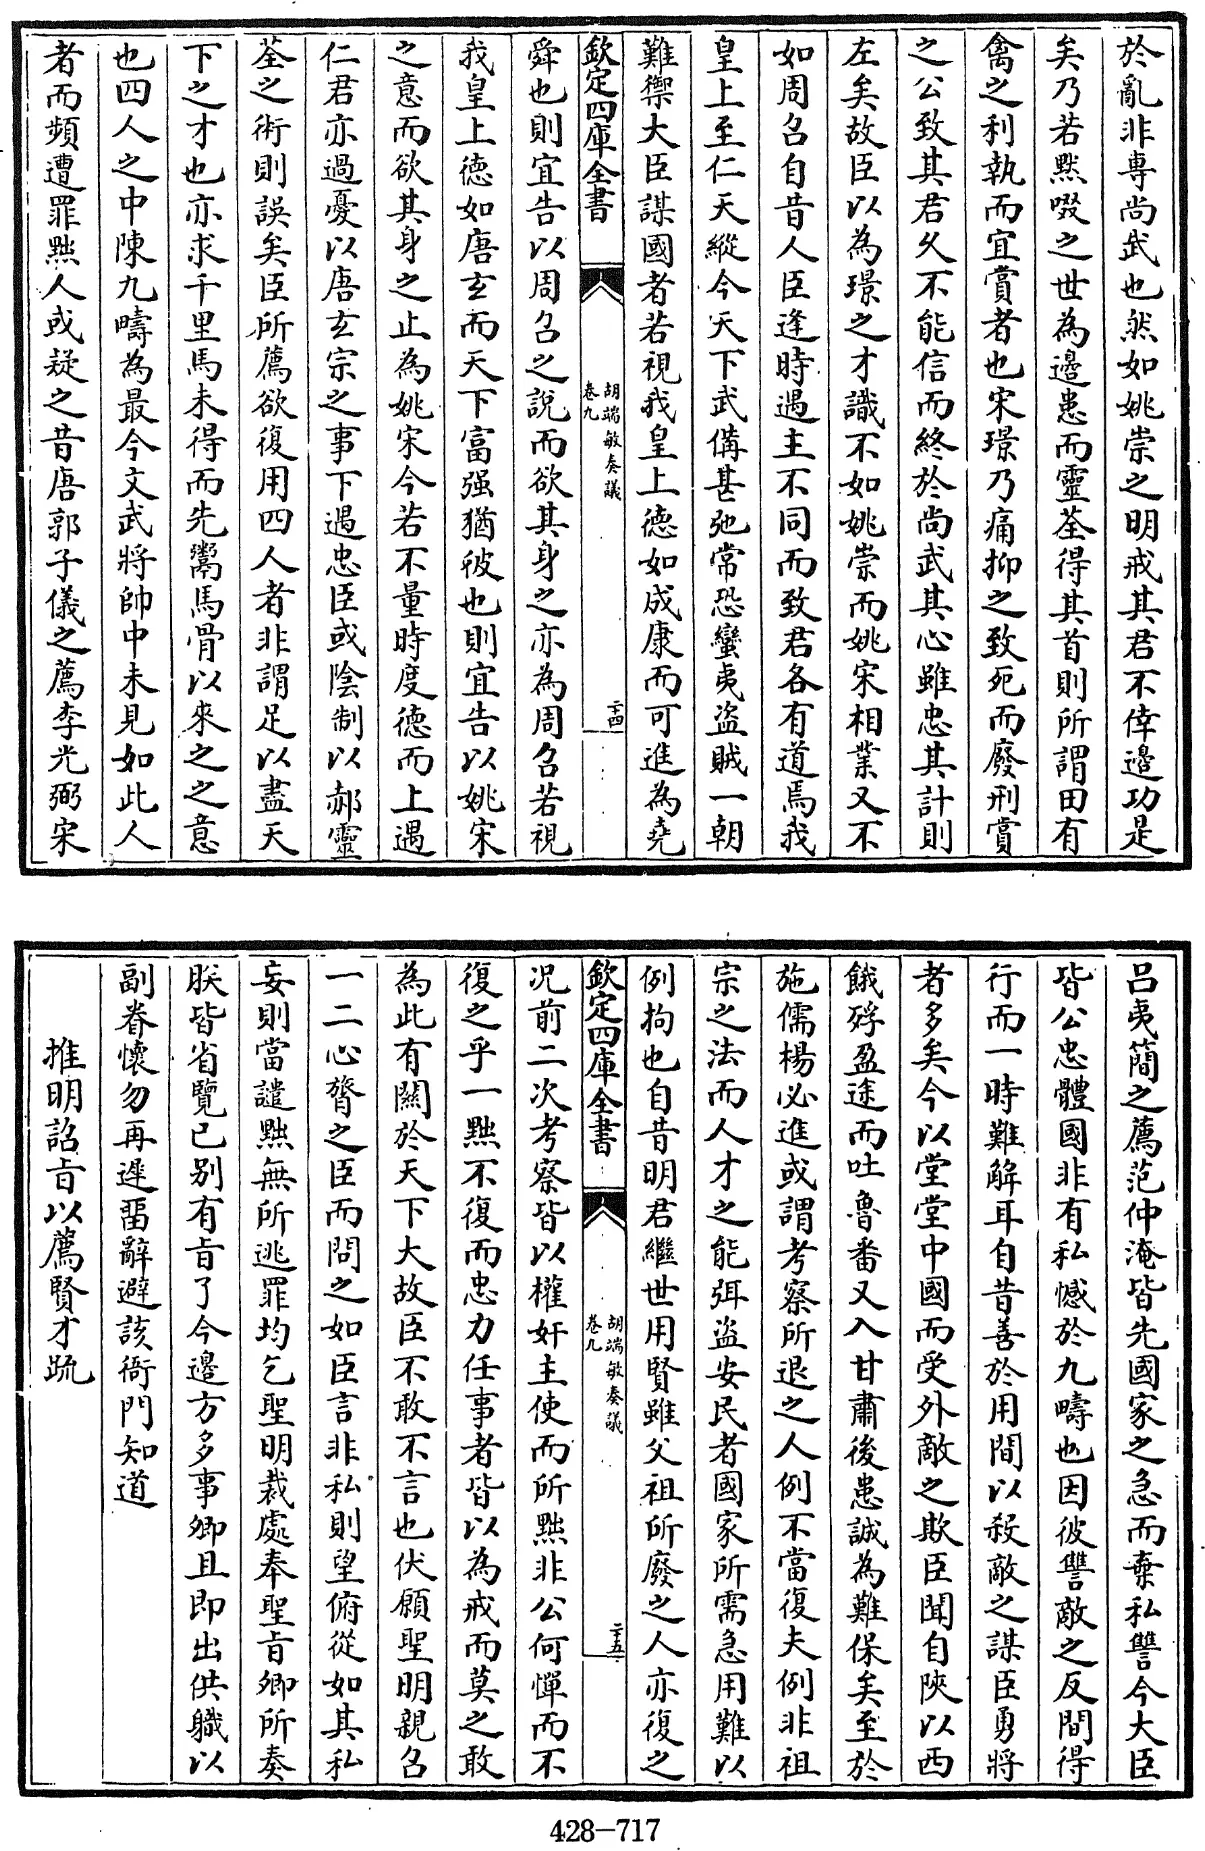 於亂非專尚武也然如姚崇之明戒其君不倖邊功是
矣乃若黙啜之世為邊患而靈荃得其首則所謂田有
禽之利執而宜賞者也宋璟乃痛抑之致死而廢刑賞
之公致其君久不能信而終於尚武其心雖忠其計則
左矣故臣以為璟之才識不如姚崇而姚宋相業又不
如周召自昔人臣逢時遇主不同而致君各有道焉我
皇上至仁天縱今天下武備甚弛常恐蠻夷盗賊一朝
難禦大臣謀國者若視我皇上德如成康而可進為堯
欽定四庫全書
胡端敏奏議
卷九
二十四
舜也則宜告以周召之說而欲其身之亦為周召若視
我皇上德如唐玄而天下富强猶彼也則宜告以姚宋
之意而欲其身之止為姚宋今若不量時度德而上遇
仁君亦過憂以唐玄宗之事下遇忠臣或陰制以郝靈
荃之術則誤矣臣所薦欲復用四人者非謂足以盡天
下之才也亦求千里馬未得而先鬻馬骨以來之之意
也四人之中陳九疇為最今文武將帥中未見如此人
者而頻遭罪黜人或疑之昔唐郭子儀之薦李光弼宋
吕夷簡之薦范仲淹皆先國家之急而棄私讐今大臣
皆公忠體國非有私憾於九疇也因彼讐敵之反間得
行而一時難解耳自昔善於用間以殺敵之謀臣勇將
者多矣今以堂堂中國而受外敵之欺臣聞自陜以西
餓殍盈途而吐魯番又入甘肅後患誠為難保矣至於
施儒楊必進或謂考察所退之人例不當復夫例非祖
宗之法而人才之能弭盗安民者國家所需急用難以
例拘也自昔明君繼世用賢雖父祖所廢之人亦復之
欽定四庫全書
胡端敏奏議
卷九
二十五
况前二次考察皆以權奸主使而所黜非公何憚而不
復之乎一黜不復而忠力任事者皆以為戒而莫之敢
為此有關於天下大故臣不敢不言也伏願聖明親召
一二心膂之臣而問之如臣言非私則望俯從如其私
妄則當譴黜無所逃罪均乞聖明裁處奉聖旨卿所奏
朕皆省覽已别有旨了今邊方多事卿且即出供職以
副眷懷勿再遲留辭避該衙門知道
推明詔旨以薦賢才疏
428-717